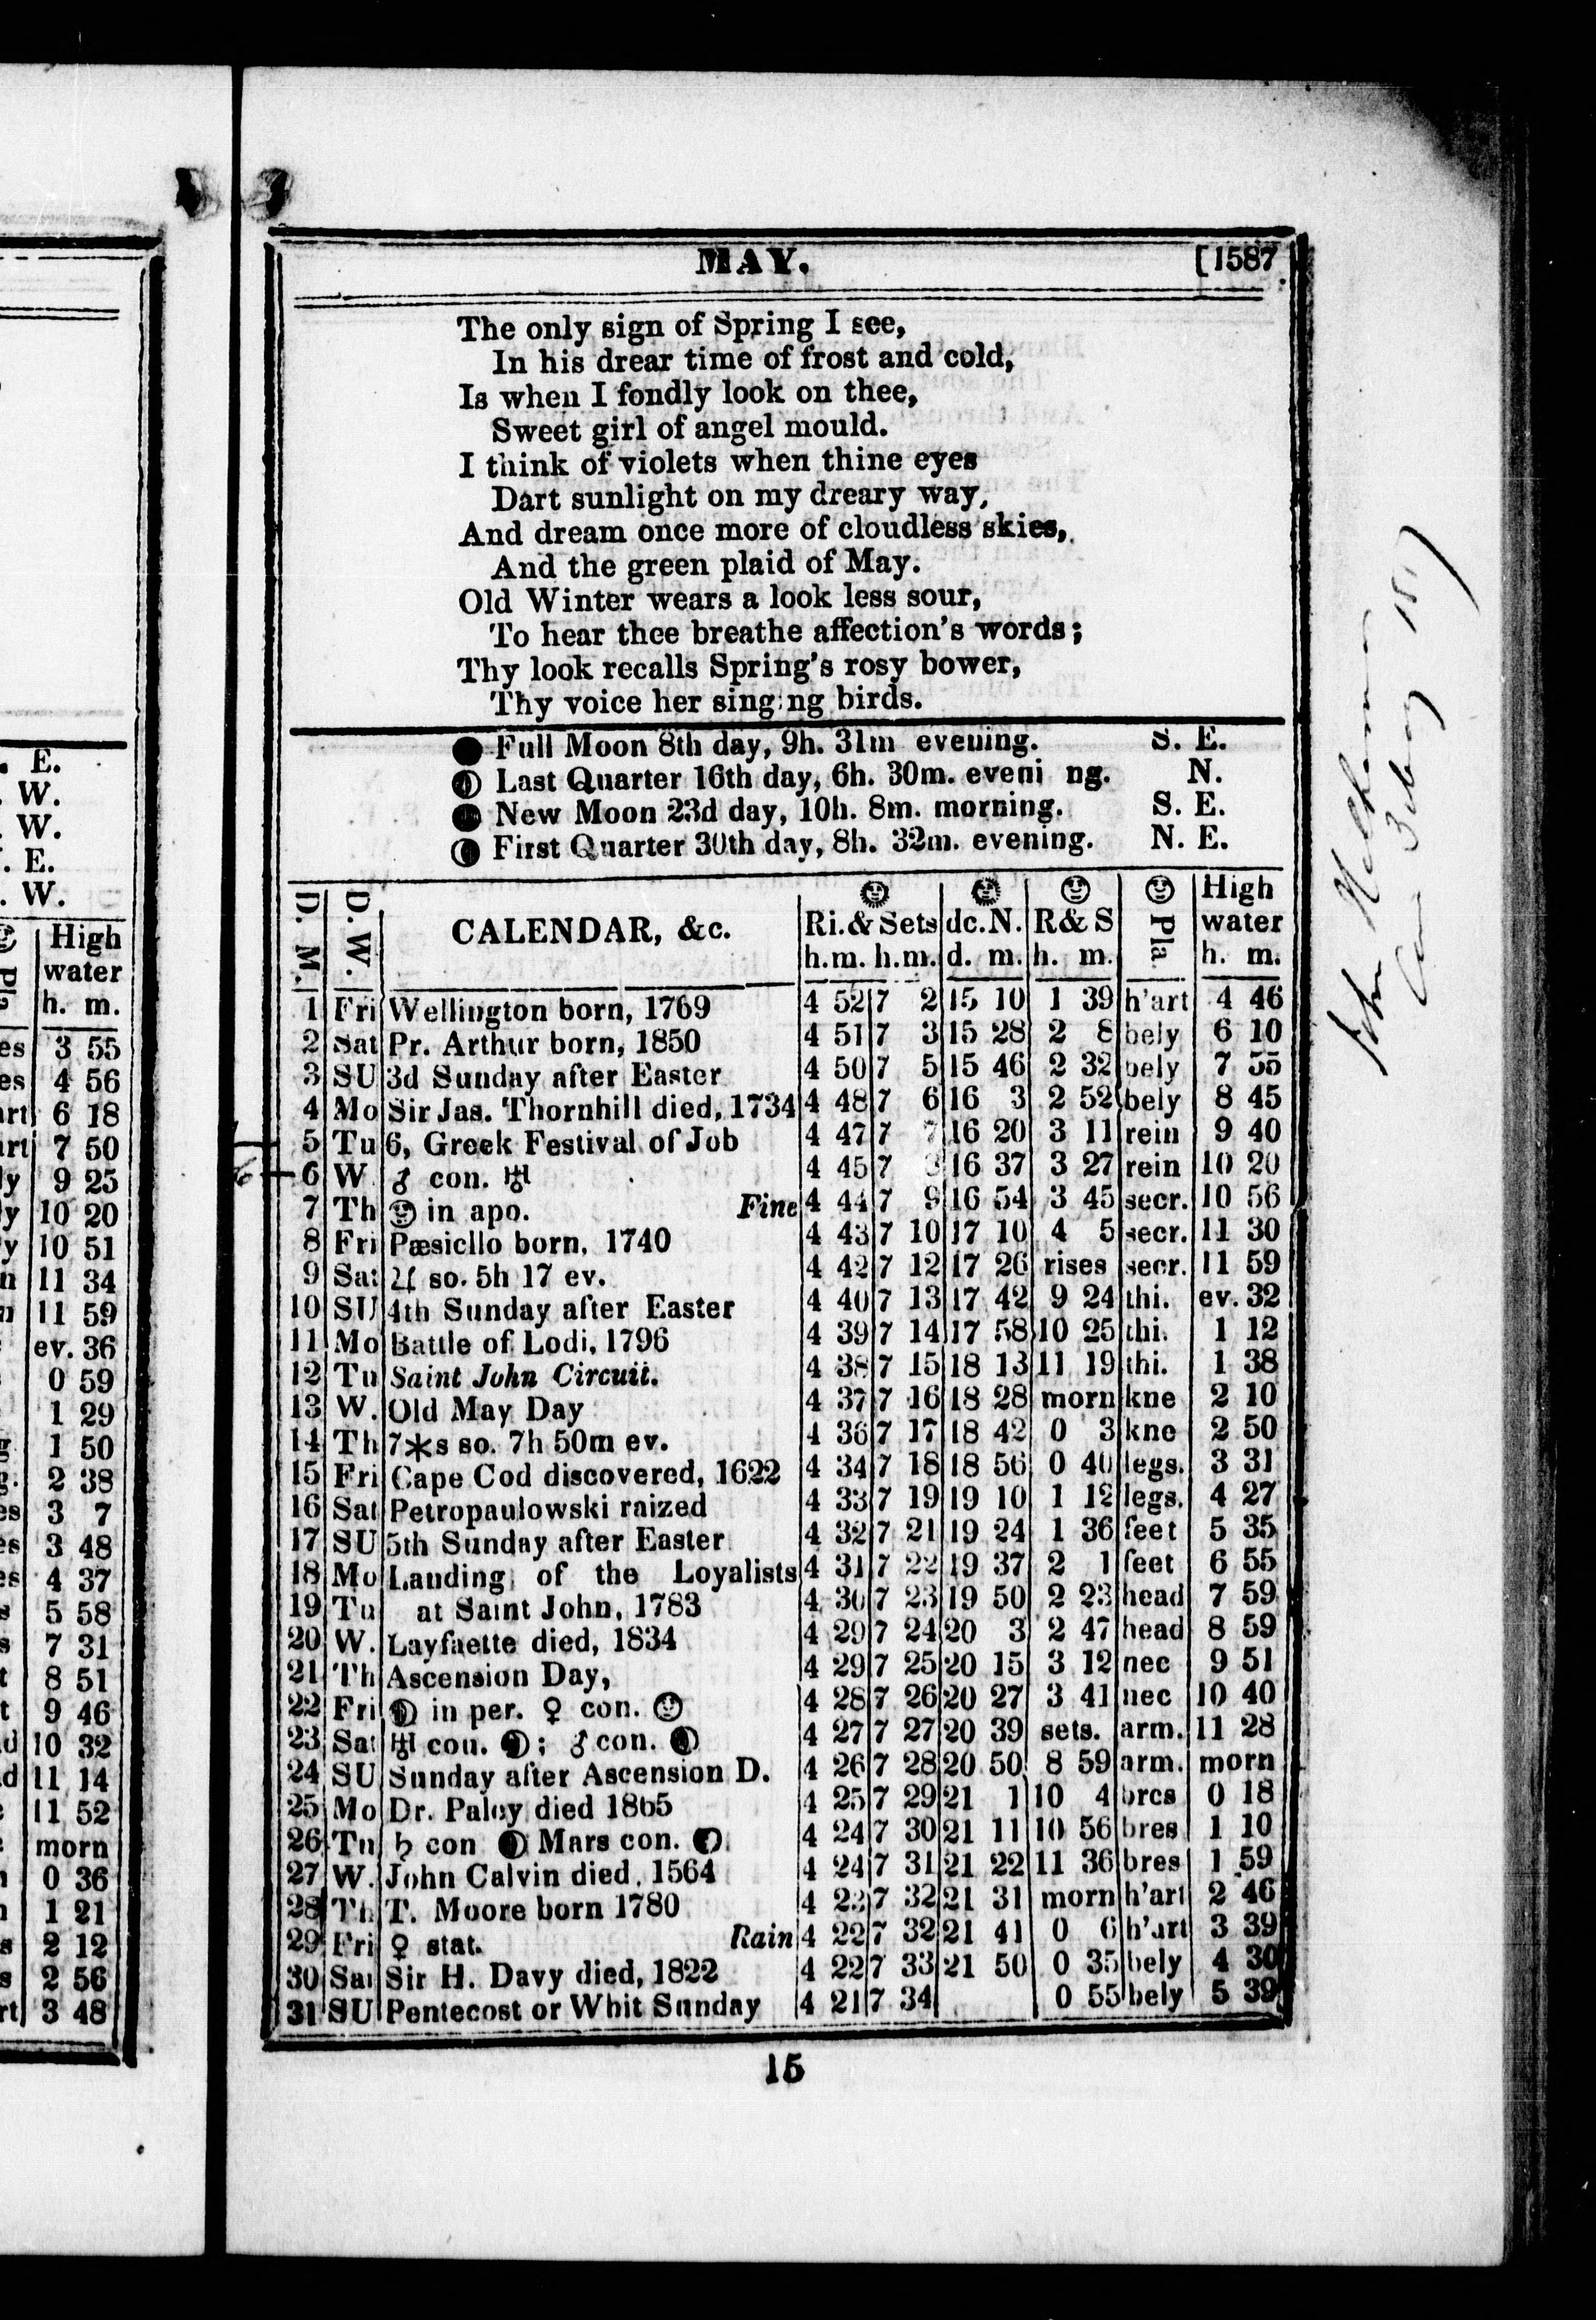 MAY. [1587
The only sign of Spring I see,
In his drear time of frost and cold,
Is when I fondly look on thee,
Sweet girl of angel mould.
I think of violets when thine eyes
Dart sunlight on my dreary way,
And dream once more of cloudless skies,
And the green plaid of May.
Old Winter wears a look less sour,
To hear thee breathe affection's words;
Thy look recalls Spring's rosy bower,
Thy voice her singing birds.
Full Moon 8th day, 9h. 31m evening. S. E.
Last Quarter 16th day, 6h. 30m. eveni ng. N.
New Moon 23d day, 10h. 8m. morning. S. E.
First Quarter 30th day, 8h. 32m. evening. N. E.
D. M. D. W. CALENDAR, &c. Ri.& Sets dc.N. R& S Pla. High water
h.m. h.m. d. m. h. m. h. m.
1 Fri Wellington born, 1769 4 52 7 2 15 10 1 39 h'art 4 46
2 Sat Pr. Arthur born, 1850 4 51 7 3 15 28 2 8 bely 6 10
3 SU 3d Sunday after Easter 4 50 7 5 15 46 2 32 bely 7 55
4 Mo Sir Jas. Thornhill died, 1734 4 48 7 6 16 3 2 52 bely 8 45
5 Tu 6, Greek Festival of Job 4 47 7 7 16 20 3 11 rein 9 40
6 W ♂ con. ♅ 4 45 7 16 37 3 27 rein 10 20
7 Th in apo. Fine 4 44 7 9 16 54 3 45 secr. 10 56
8 Fri Pæsicllo born, 1740 4 43 7 10 17 10 4 5 secr. 11 30
9 Sat ♃ so. 5h 17 ev. 4 42 7 12 17 26 rises secr. 11 59
10 SU 4th Sunday after Easter 4 40 7 13 17 42 9 24 thi. ev. 32
11 Mo Battle of Lodi, 1796 4 39 7 14 17 58 10 25 thi. 1 12
12 Tu Saint John Circuit. 4 38 7 15 18 13 11 19 thi. 1 38
13 W. Old May Day 4 37 7 16 18 28 morn kne 2 10
14 Th 7*s so. 7h 50m ev. 4 36 7 17 18 42 0 3 kne 2 50
15 Fri Cape Cod discovered, 1622 4 34 7 18 18 56 0 40 legs. 3 31
16 Sat Petropaulowski raized 4 33 7 19 19 10 1 12 legs. 4 27
17 SU 5th Sunday after Easter 4 32 7 21 19 24 1 36 feet 5 35
18 Mo Landing of the Loyalists 4 31 7 22 19 37 2 1 feet 6 55
19 Tu at Saint John, 1783 4 30 7 23 19 50 2 23 head 7 59
20 W. Layfaette died, 1834 4 29 7 24 20 3 2 47 head 8 59
21 Th Ascension Day, 4 29 7 25 20 15 3 12 nec 9 51
22 Fri in per. ♀ con. 4 28 7 26 20 27 3 41 nec 10 40
23 Sat ♅ con. ; ♂ con. 4 27 7 27 20 39 sets. arm. 11 28
24 SU Sunday after Ascension D. 4 26 7 28 20 50 8 59 arm. morn
25 Mo Dr. Paley died 1865 4 25 7 29 21 1 10 4 bres 0 18
26 Tu ♄ con Mars con. 4 24 7 30 21 11 10 56 bres 1 10
27 W. John Calvin died, 1564 4 24 7 31 21 22 11 36 bres 1 59
28 Th T. Moore born 1780 4 23 7 32 21 31 morn h'art 2 46
29 Fri ♀ stat. Rain 4 22 7 32 21 41 0 6 h'art 3 39
30 Sat Sir H. Davy died, 1822 4 22 7 33 21 50 0 35 bely 4 30
31 SU Pentecost or Whit Sunday 4 21 7 34 0 55 bely 5 39
15
E.
W.
W.
E.
W.
High
water
h. m.
3 55
4 56
6 18
7 50
9 25
10 20
10 51
11 34
11 59
ev. 36
0 59
1 29
1 50
2 38
3 7
3 48
4 37
5 58
7 31
8 51
9 46
10 32
11 14
11 52
morn
0 36
1 21
2 12
2 56
3 48
John